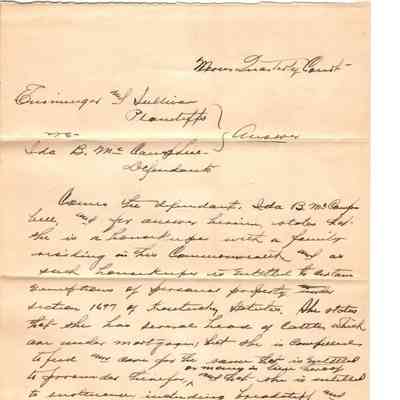 Quarterly Court
Ensminger & Sullivan
Plaintiffs
vs Answer
Ida B. McCampbell
Defendant
Comes the defendant, Ida B. McCamp
bell, and for answer herein, states that
she is a housekeeper with a family
residing in this Commonwealth and as
such housekeeper is entitled to certain
exemptions of personal property under
section 1697 of Kentucky Statutes. She states
that she has several head of cattle, which
are under mortgage, but she is compelled
to feed and care for the same that is entitled
or money in lieu thereof
to provender therefor, and that she is entitled
to sustenance including breadstuff and